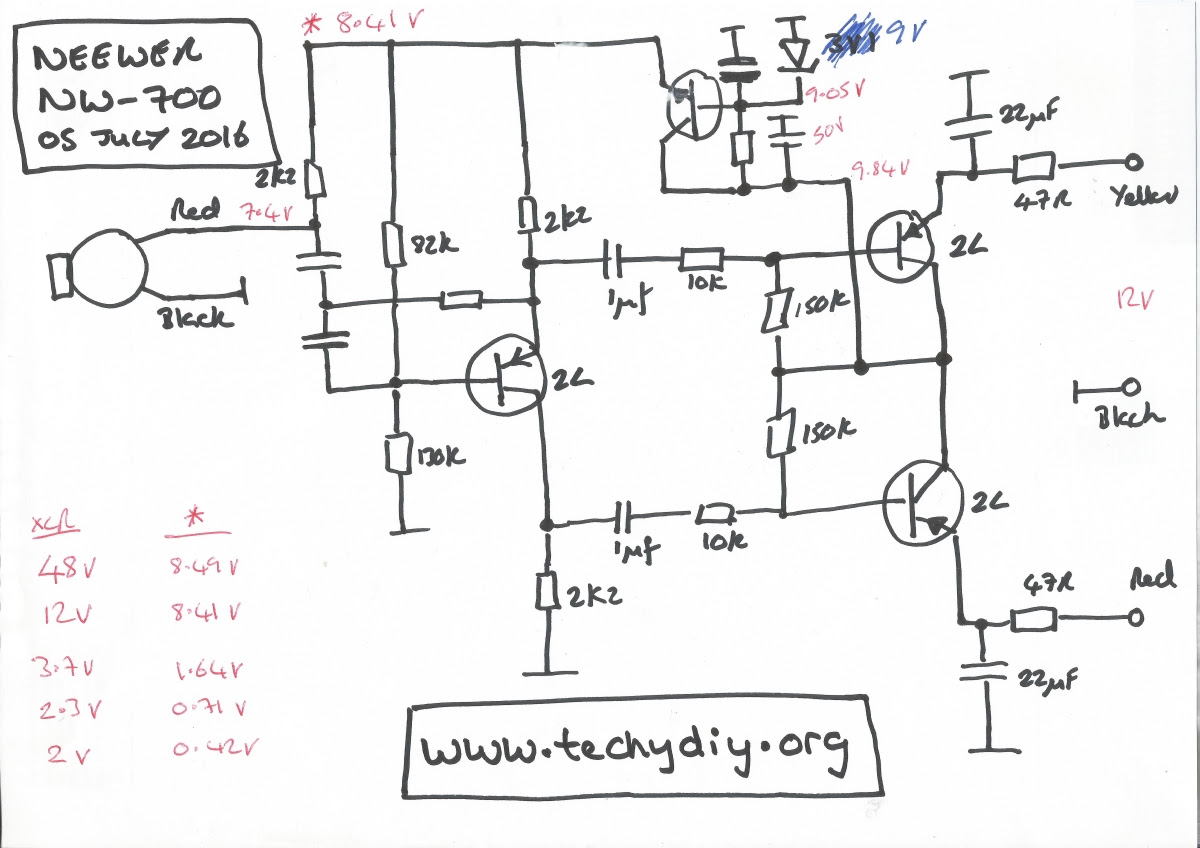 NEEWER
NW-700
05 JULY 2016
* 8.41V
9V
9.05V
50V
9.84V
22µF
47R
Yellow
2k2
Red
7.4V
Black
82k
2k2
1µf
10k
150k
2L
12V
Black
2L
130k
150k
2L
1µf
10k
2K2
47R
Red
22µF
XLR *
48V 8.49V
12V 8.41V
3.7V 1.64V
2.3V 0.71V
2V 0.42V
www.techydiy.org